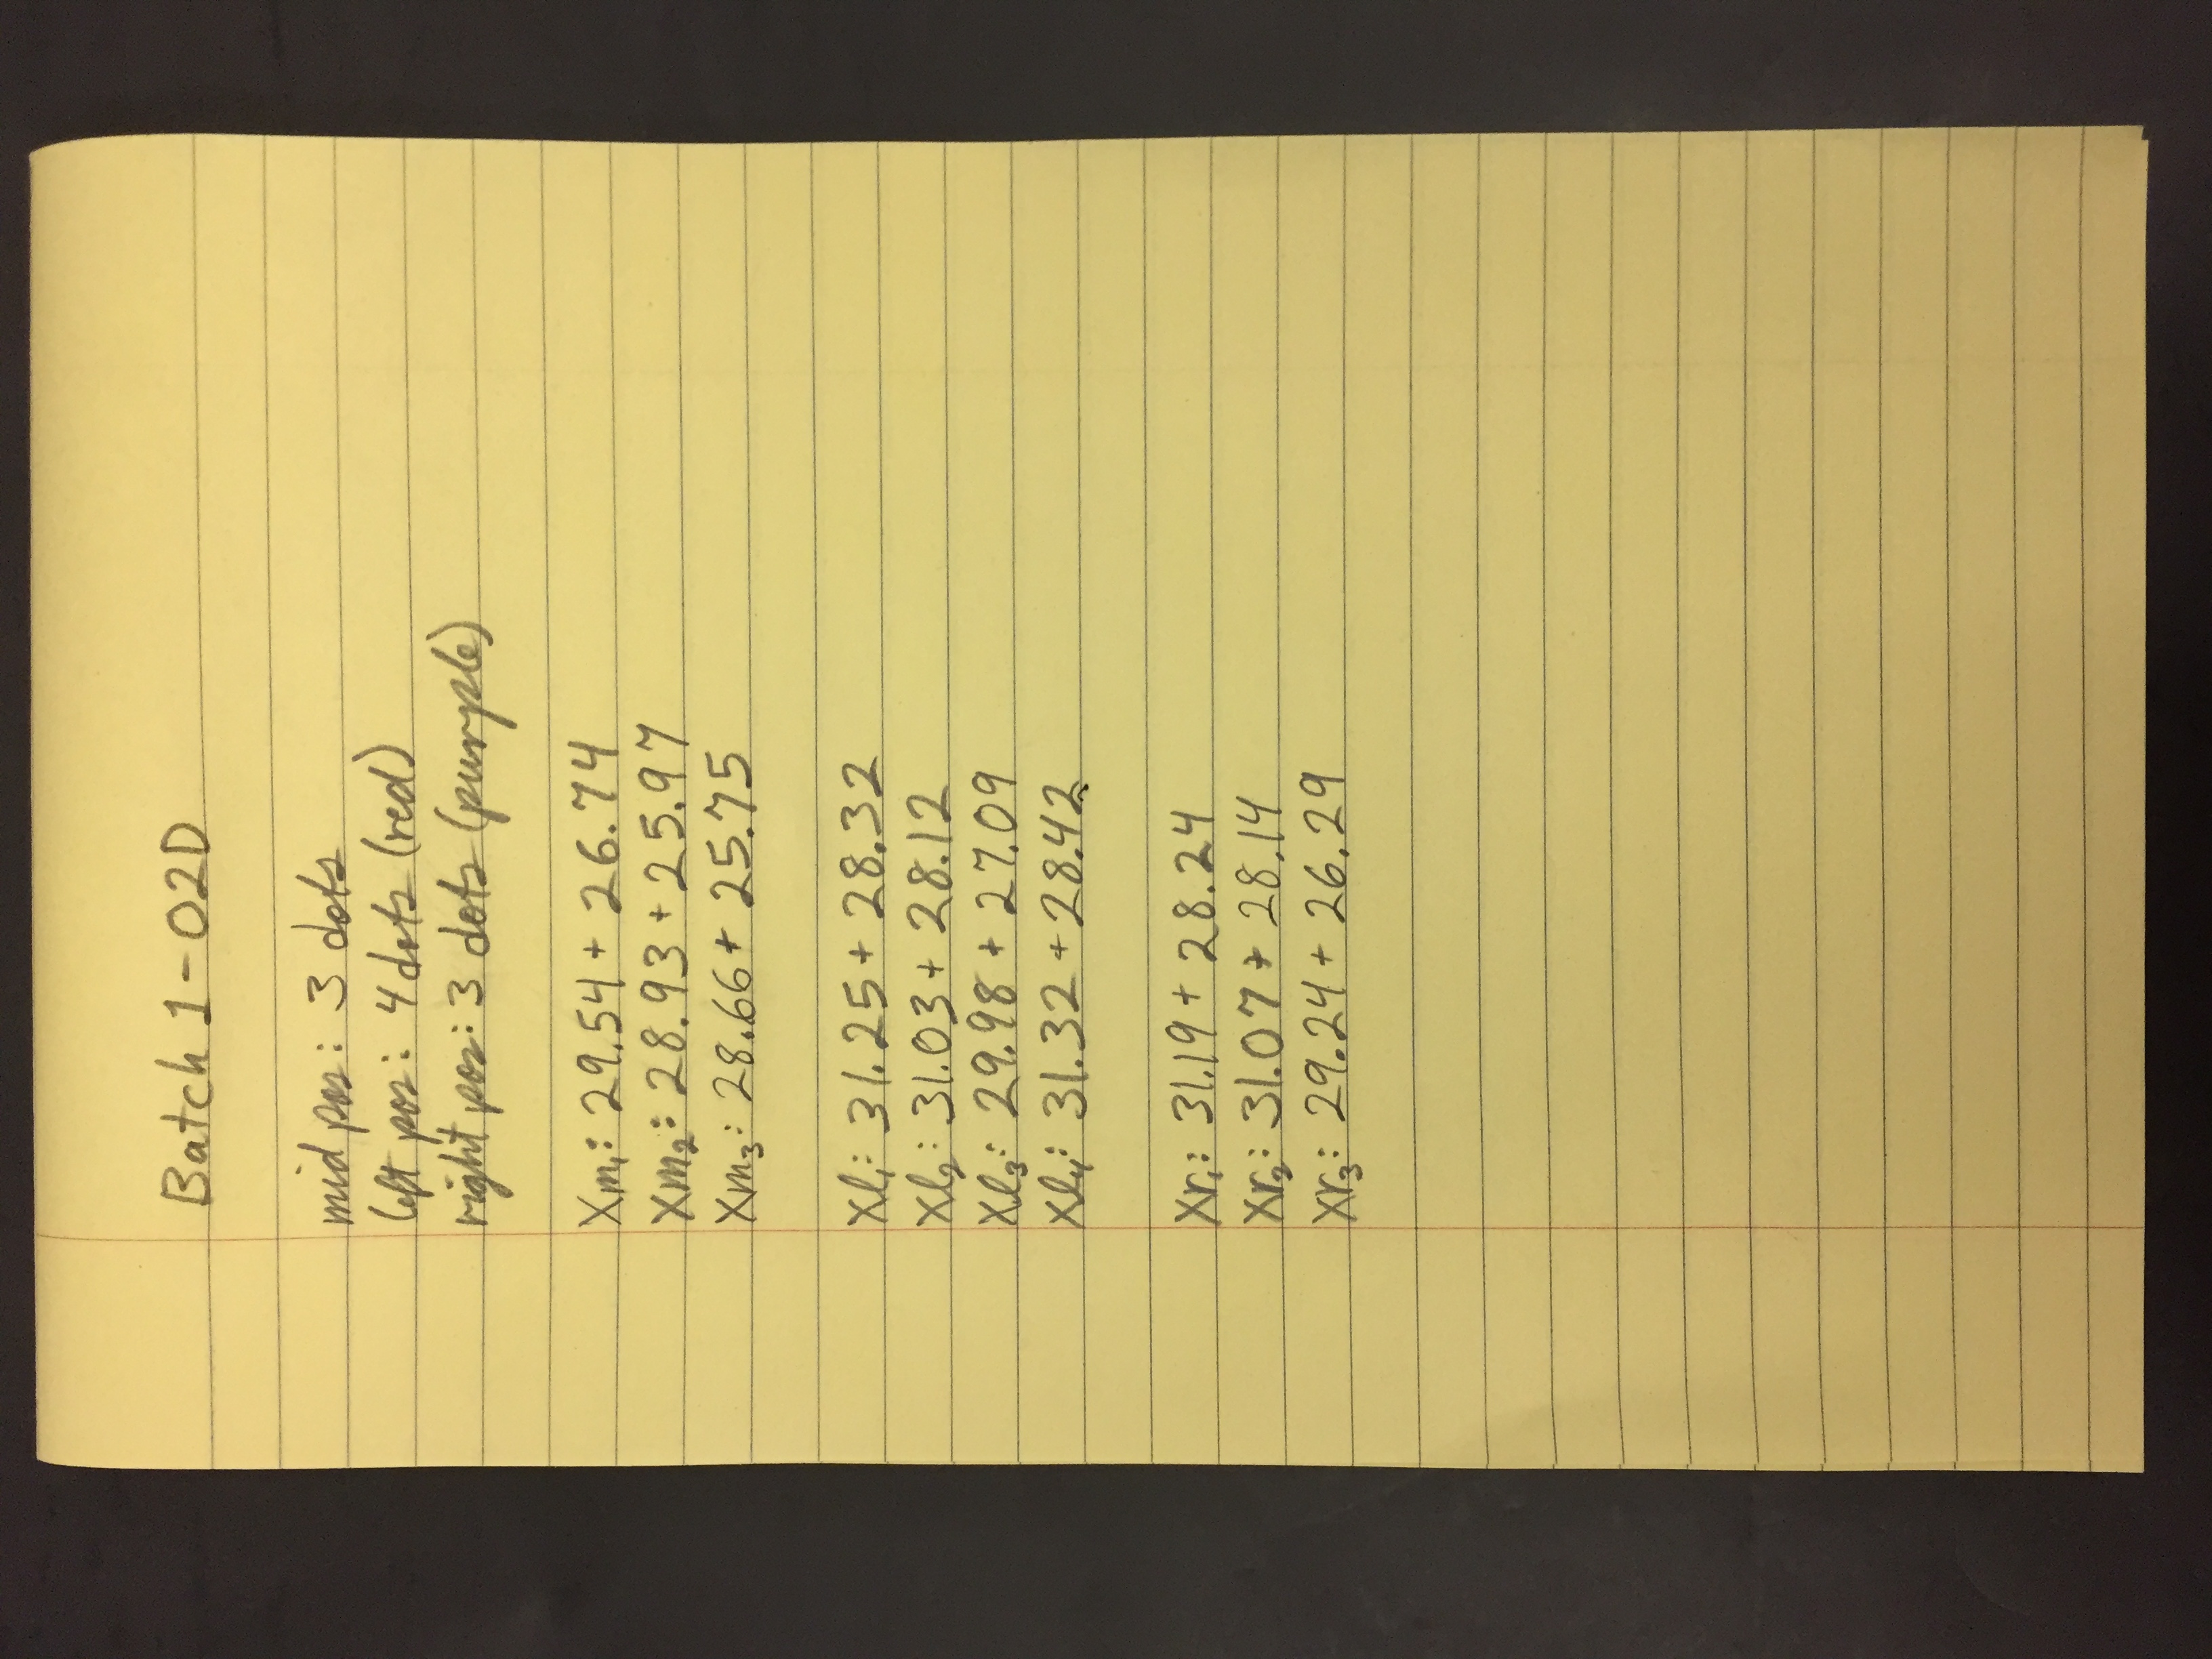 Batch 1-02D
mid pos: 3 dots
left pos: 4 dots (red)
right pos: 3 dots (purple)
Xm₁: 29.54 + 26.74
Xm₂: 28.93 + 25.97
Xm₃: 28.66 + 25.75
Xl₁: 31.25 + 28.32
Xl₂: 31.03 + 28.12
Xl₃: 29.98 + 27.09
Xl₄: 31.32 + 28.42
Xr₁: 31.19 + 28.24
Xr₂: 31.07 + 28.14
Xr₃: 29.24 + 26.29